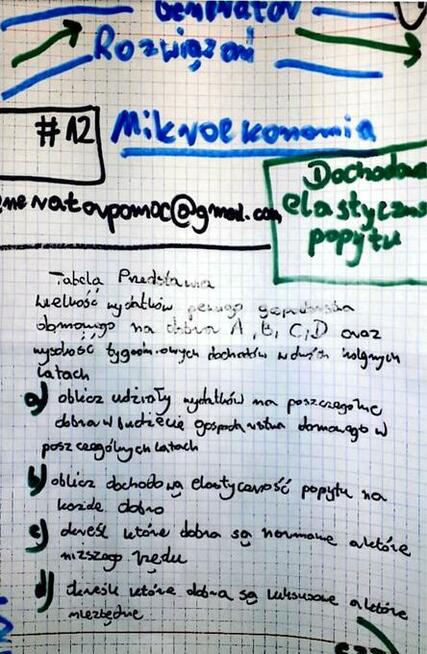 Generator
Rozwiązań
#12 Mikroekonomia
Dochodowa
elastyczność
neratorpomoc@gmail.com
popytu
Tabela Przedstawia
wielkość wydatków pewnego gospodarstwa
domowego na dobra A, B, C, D oraz
wysokość tygodniowych dochodów w dwóch kolejnych
latach
a) oblicz udziały wydatków na poszczególne
dobra w budżecie gospodarstwa domowego w
poszczególnych latach
b) oblicz dochodową elastyczność popytu na
każde dobro
c) określ które dobra są normalne a które
niższego rzędu
d) określ które dobra są luksusowe a które
niezbędne